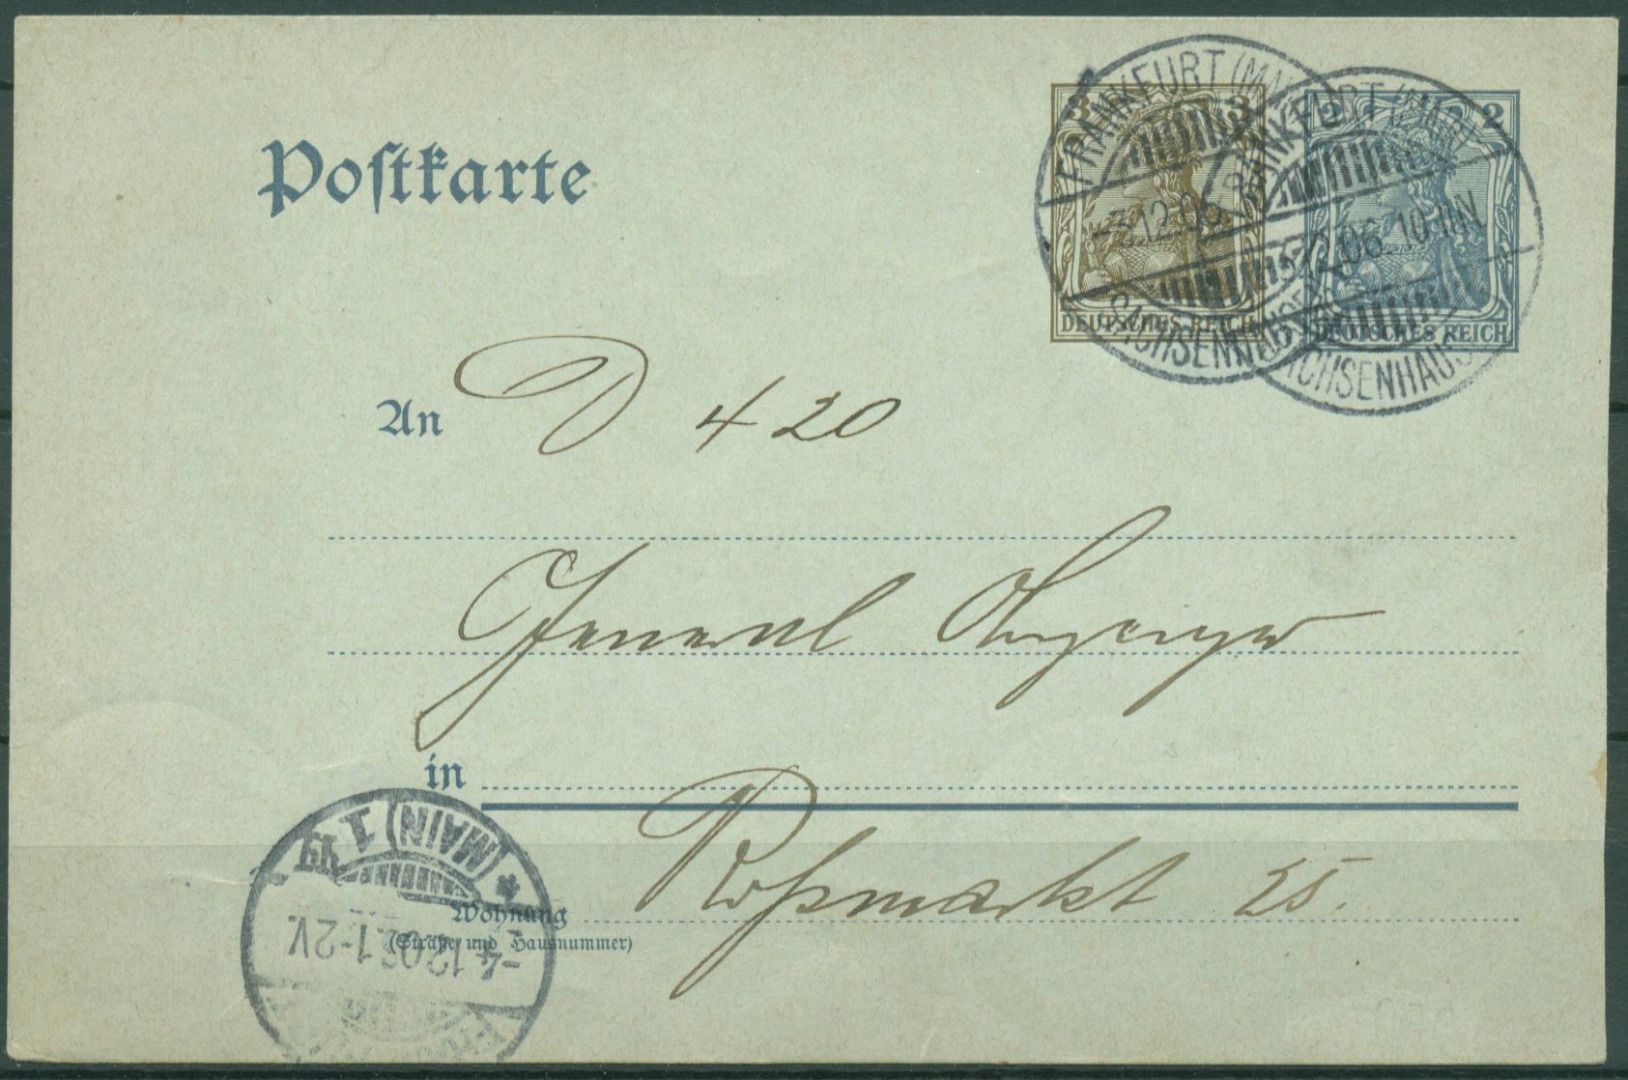 Postkarte
3 3
2 2
DEUTSCHES REICH
DEUTSCHES REICH
FRANKFURT (MAIN)
12.06.
SACHSENHAUSEN
FRANKFURT (MAIN)
12.06. 10-11N
SACHSENHAUSEN
An D 420
General Anzeiger
in
Roßmarkt 25.
Wohnung
(Straße und Hausnummer)
(MAIN) 1
-4.12.06. 1-2V.